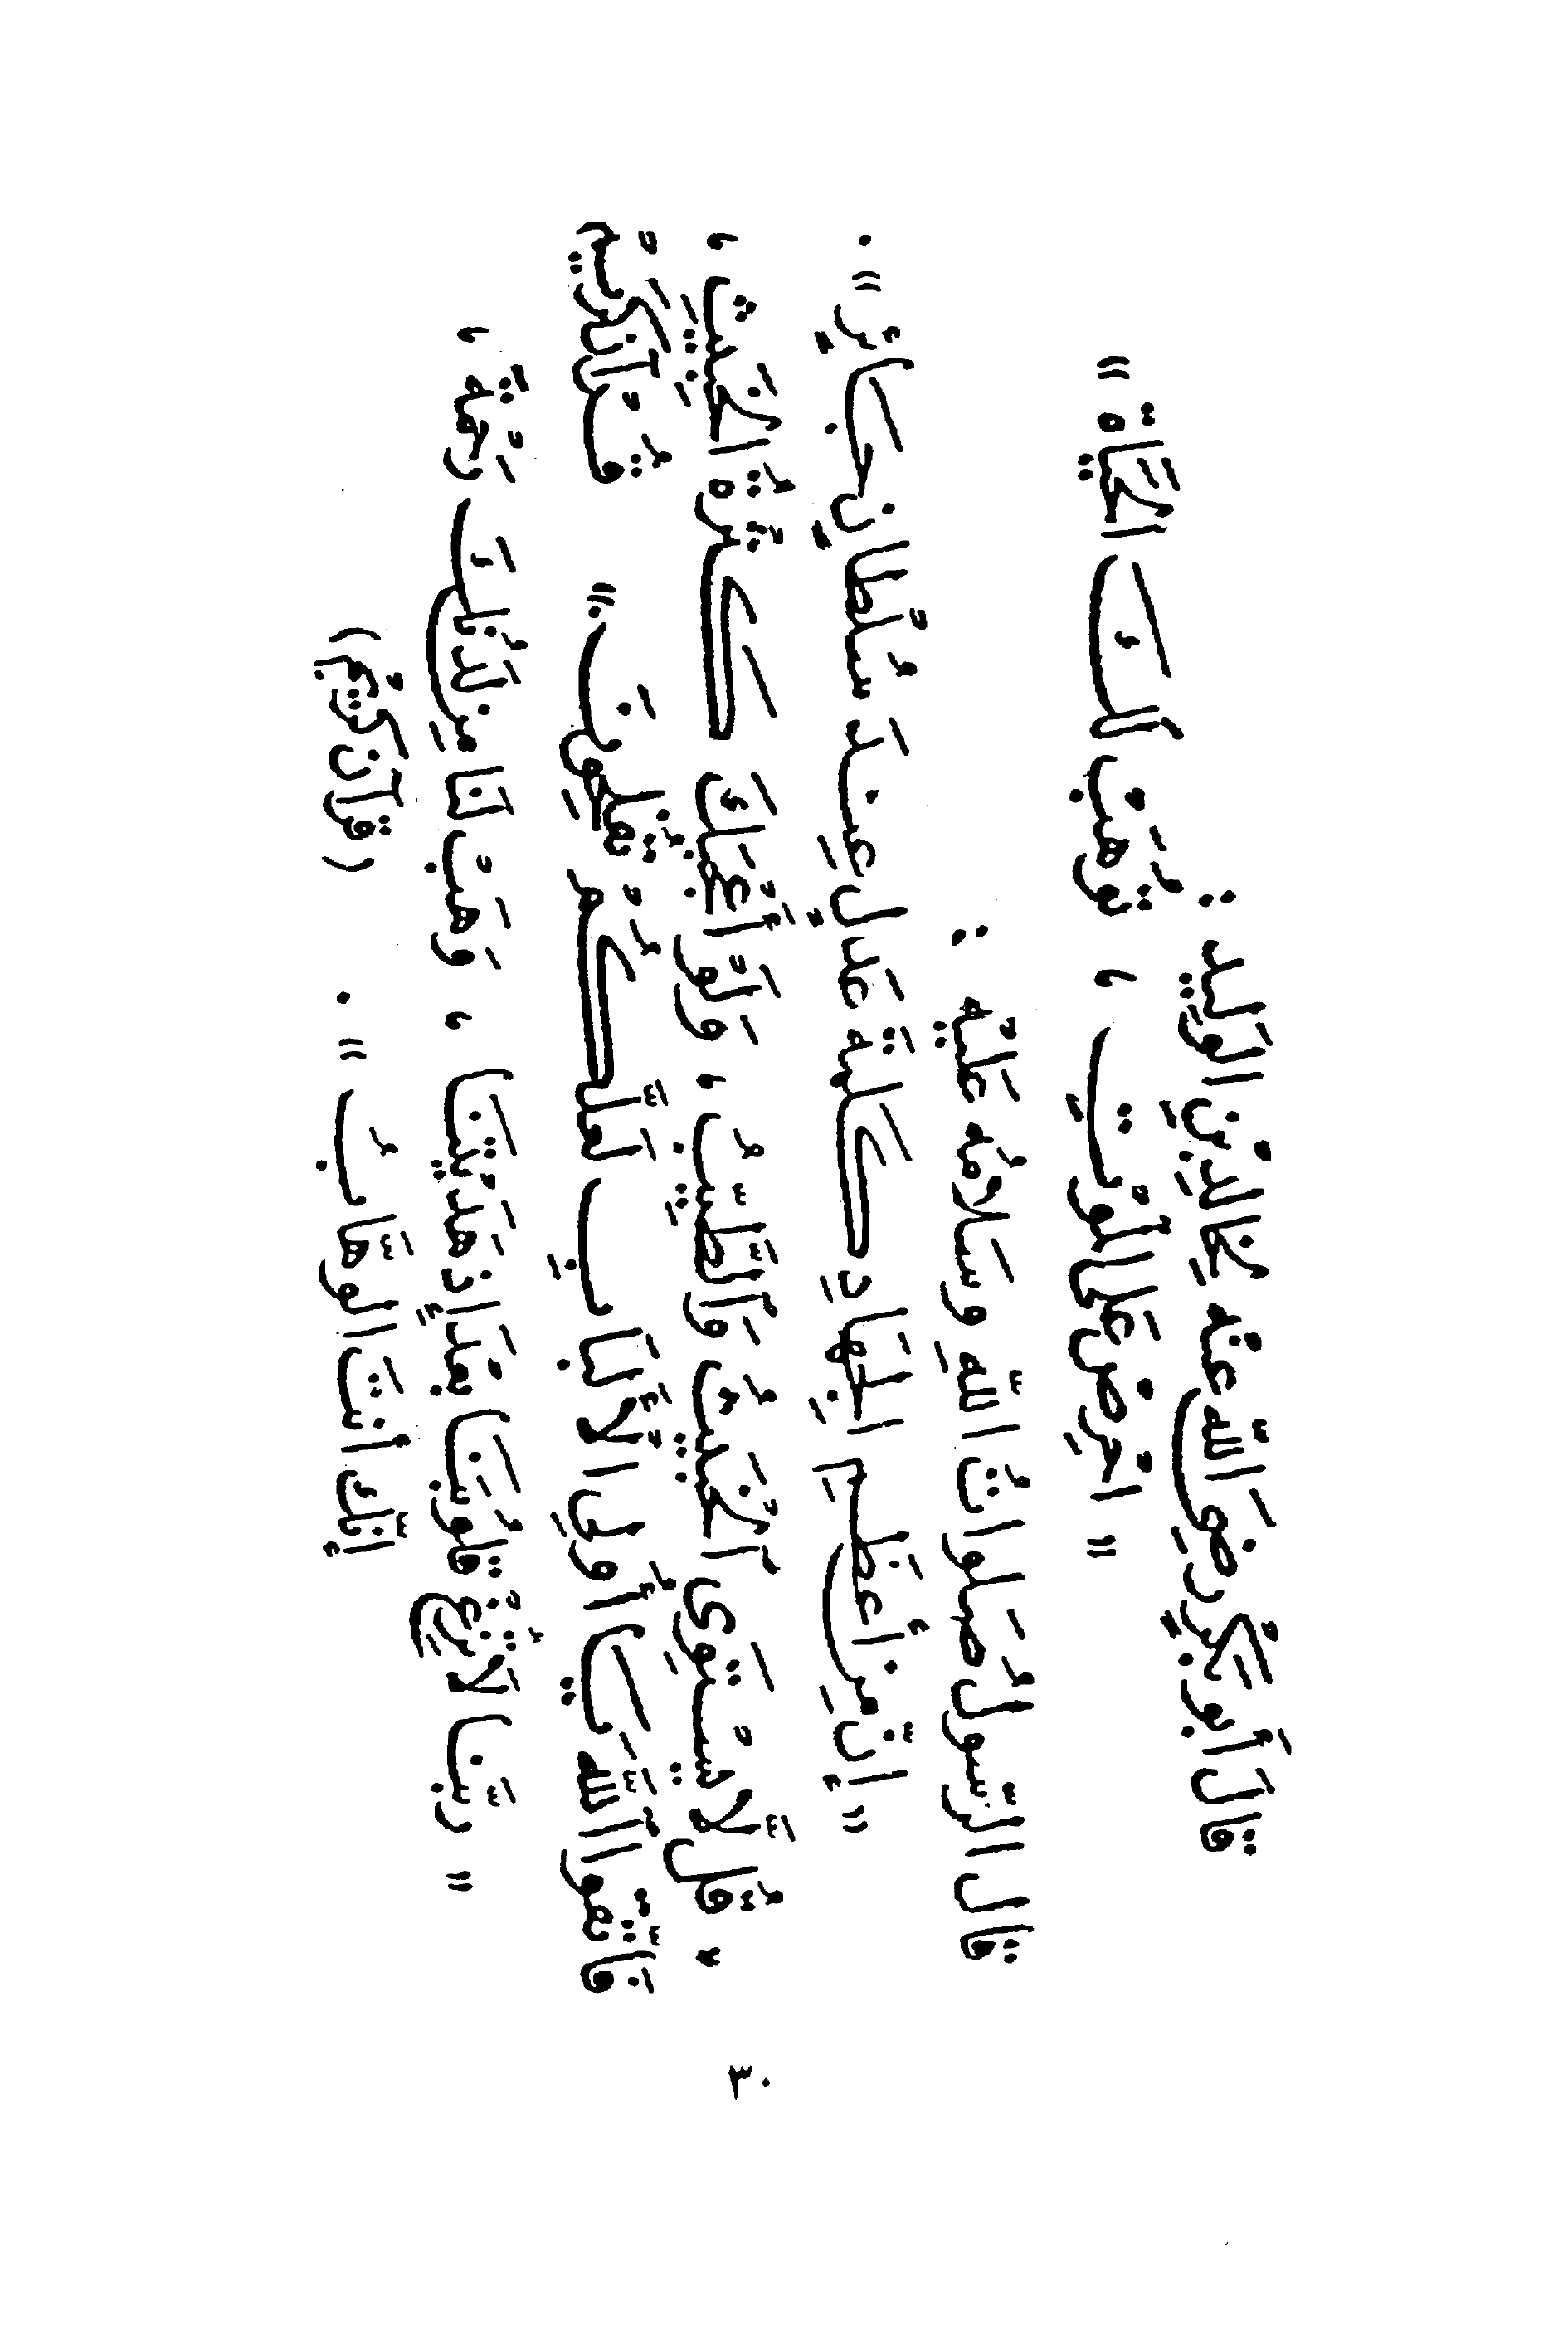 قَالَ أَبو بَكْرٍ رَضِيَ اللّه عنْه لِخَالِدِ بْنِ الوَلِيد :
" احْرِصْ عَلَى المَوْتِ ، تُوهَبْ لَكَ الحَيَاة "
قال الرّسولُ صَلواتُ اللّهِ وسَلامُه عَلَيْه :
" إنّ مِن أعْظَمِ الجِهَادِ كَلِمَةَ عَدْلٍ عِنْدَ سُلْطَانٍ جَائِرٍ " .
" قُل لَّا يَسْتَوِي ٱلْخَبِيثُ وَٱلطَّيِّبُ ، وَلَوْ أَعْجَبَكَ كَثْرَةُ ٱلْخَبِيثِ ،
فَاتَّقُوا ٱللَّهَ يَا أُولِي الأَلْبَابِ لَعَلَّكُمْ تُفْلِحُونَ ." قُرْآن كَرِيم
" رَبَّنَا لَا تُزِغْ قُلُوبَنَا بَعْدَ إِذْ هَدَيْتَنَا ، وَهَبْ لَنَا مِن لَدُنْكَ رَحْمَةً ،
إِنَّك أنتَ الوَهَّابُ " . (قرآن كريم)
٣٠